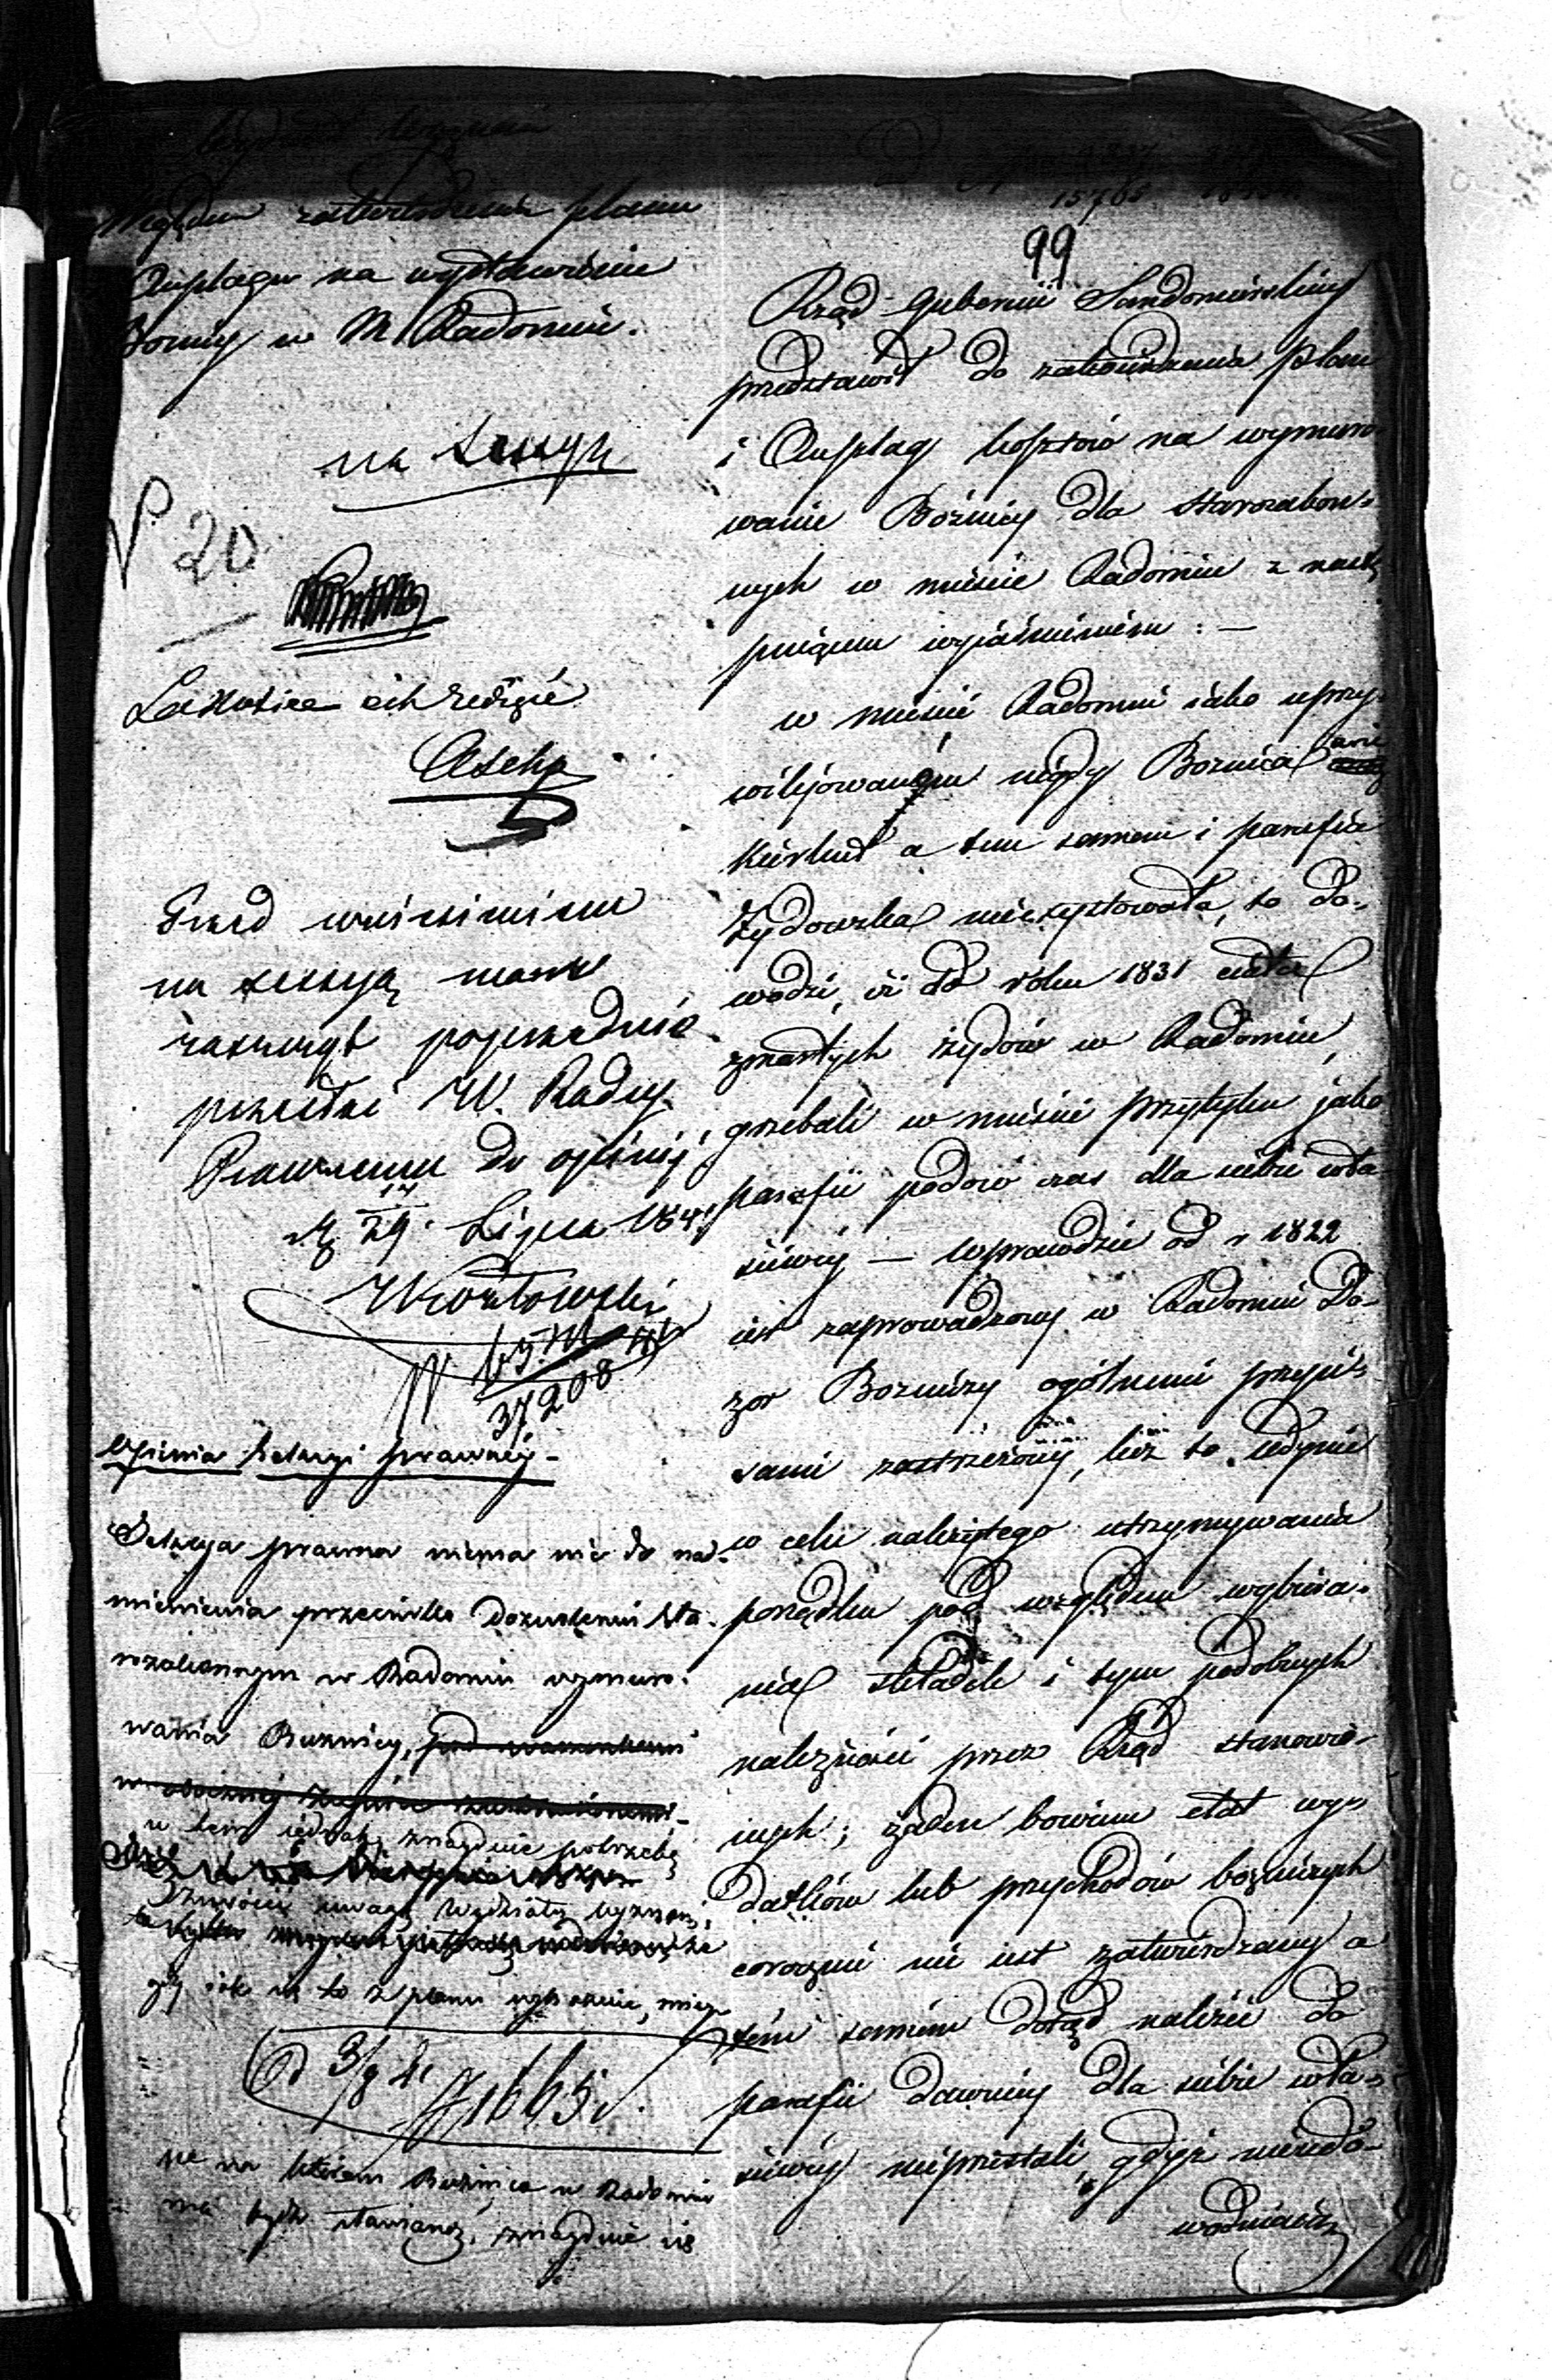 Względem zatwierdzenia planu
Anszlagu na wystawienie
Bożnicy w M. Radomiu.
na sessyą
N 20
La notice est redigée
Przed wniesieniem
na sessyą mam
zaszczyt poprzednio
przesłać W. Radcy
Prawnemu do opinij
d. 17/29 Lipca 1841
N 37208
Opinia Sekcyi prawnéj -
Sekcya prawna niema nic do nad-
mienienia przeciwko dozwoleniu sta-
rozakonnym w Radomiu wymuro-
wania Bożnicy, pod warunkami
w tem jednak znajduie potrzebę
zwrócić uwagę Wydziału Wyznań,
że
gdy iak się to z planu wykazuie, miey
Od 3/8 41
N 1665
sce na którem Bożnica w Radomiu
ma bydź stawianą, znayduie się
15765
99
Rząd Gubernii Sandomirskiey
przedstawił do zatwierdzenia plan
i Anszlag kosztów na wymuro-
wanie Bóżnicy dla starozakon-
nych w mieście Radomiu z nastę-
puiącem wyiaśnieniem: —
w mieście Radomiu iako uprzy-
wilejowaném nigdy Boznica ani
Kierkut a tem samem i parafia
Żydowska nieexystowała, to do-
wodzi, iż do roku 1831 ciała
zmarłych żydów w Radomiu,
grzebali w mieście Przytyku jako
parafii podów czas dla siebie wła-
ściwey — wprawdzie od r 1822
iest zaprowadzony w Radomiu Do-
zor Bozniczy ogólnemi przepi-
sami zastrzeżony, lecz to iedynie
w celu należytego utrzymywania
porządku pod względem wybiera-
nia składek i tym podobnych
należności przez Rząd stanowio-
nych; żaden bowiem etat wy-
datków lub przychodów bożniczych
corocznie nie iest zatwierdzany a
tém samém dotąd należeć do
parafii dawniey dla siebie wła-
ściwey nieprzestali, gdyż niéudo-
wodniaią